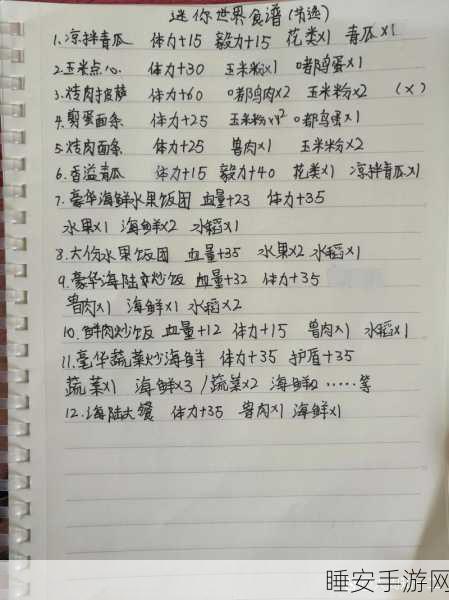 迷你世界食谱(节选)
1.凉拌青瓜 体力+15 毅力+15 花类×1 青瓜×1
2.玉米点心 体力+30 玉米粉×1 嘟鸟蛋×1
3.烤肉披萨 体力+60 嘟鸟肉×2 玉米粉×2 (×)
4.剪蛋面条 体力+25 玉米粉×2 嘟鸟蛋×1
5.烤肉面条 体力+25 兽肉×1 玉米粉×2
6.香溢青瓜 体力+15 毅力+40 花类×1 凉拌青瓜×1
7.豪华海鲜水果饭团 血量+23 体力+35
水果×1 海鲜×2 水稻×1
8.大份水果饭团 血量+35 水果×2 水稻×1
9.豪华海陆炒饭 血量+32 体力+35
兽肉×1 海鲜×1 水稻×2
10.鲜肉炒饭 血量+12 体力+15 兽肉×1 水稻×1
11.豪华蔬菜炒海鲜 体力+35 护盾+35
蔬菜×1 海鲜×3/蔬菜×2 海鲜2……等
12.海陆大餐 体力+35 兽肉×1 海鲜×1
睡安手游网